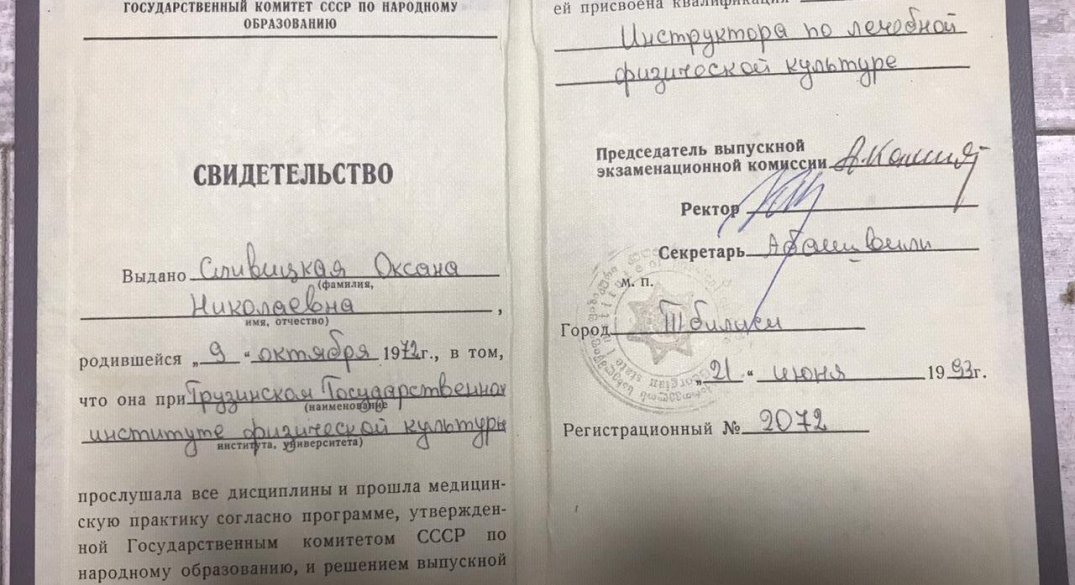 ГОСУДАРСТВЕННЫЙ КОМИТЕТ СССР ПО НАРОДНОМУ
ОБРАЗОВАНИЮ
СВИДЕТЕЛЬСТВО
Выдано Сливицкая Оксана
(фамилия,
Николаевна,
имя, отчество)
родившейся „9“ октября 1972г., в том,
что она при Грузинская Государственная
(наименование
институте физической культуры
института, университета)
прослушала все дисциплины и прошла медицин-
скую практику согласно программе, утвержден-
ной Государственным комитетом СССР по
народному образованию, и решением выпускной
ей присвоена квалификация
Инструктора по лечебной
физической культуре
Председатель выпускной
экзаменационной комиссии
Ректор
Секретарь Абашвили
м. п.
Город Тбилиси
„21“ июня 1993г.
Регистрационный № 2072